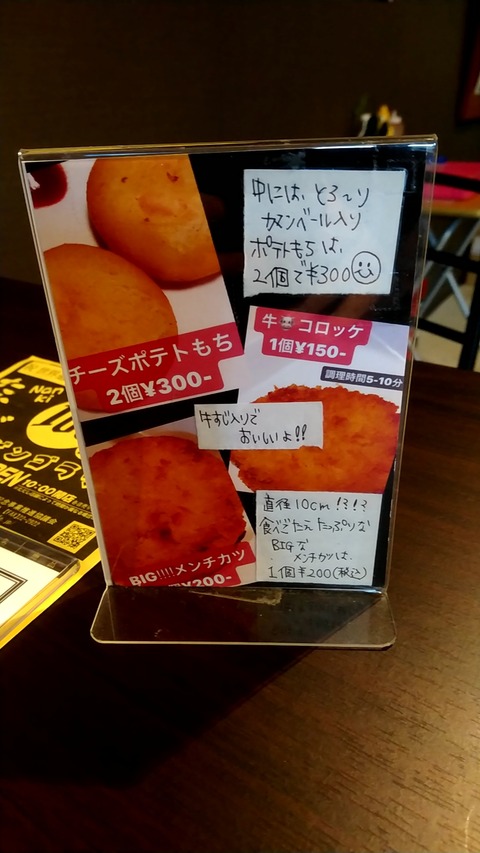 中には、とろ〜り
カマンベール入り
ポテトもちは、
2個で¥300
チーズポテトもち
2個¥300-
牛コロッケ
1個¥150-
調理時間5-10分
牛すじ入りで
おいしいよ!!
BIG!!!!メンチカツ
¥200-
直径10cm!?!?
食べごたえたっぷりな
BIGな
メンチカツは、
1個¥200(税込)
10:00開店